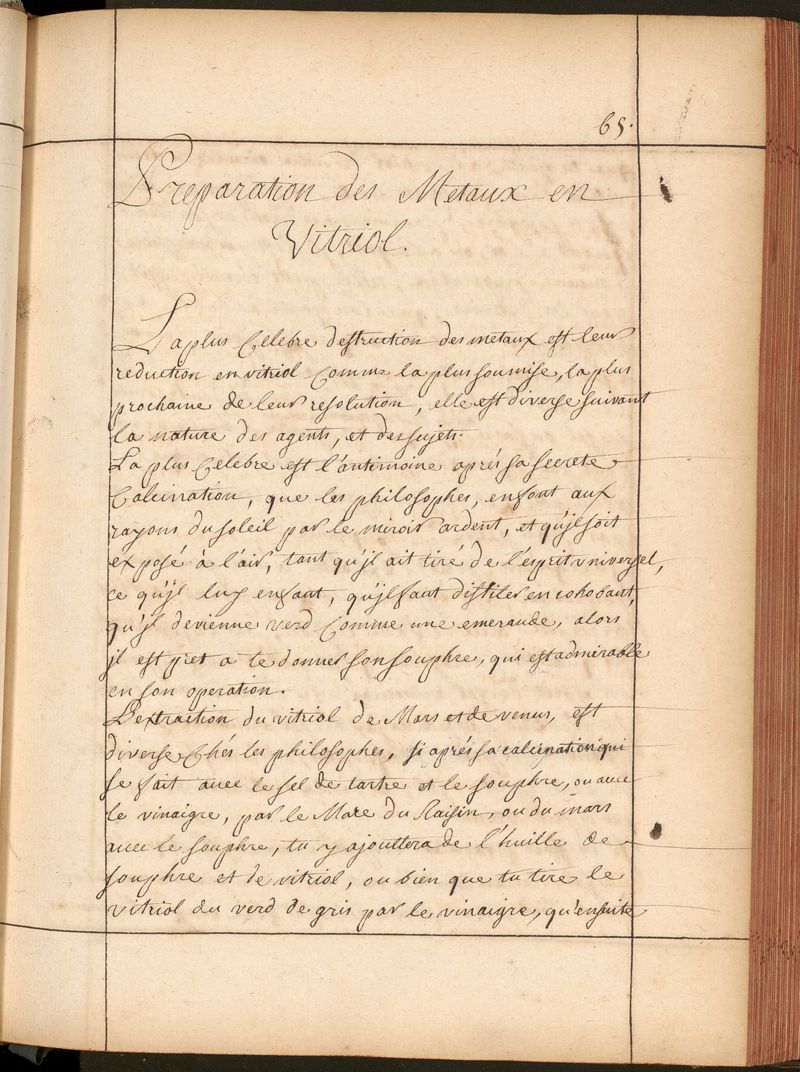 65.
Preparation des Metaux en
Vitriol.
La plus Celebre destruction des metaux est leur
reduction en vitriol Comme la plus soumise, la plus
prochaine de leur resolution, elle est diverse suivant
la nature des agents, et des sujets.
La plus Celebre est l'antimoine aprés sa secrete
Calcination, que les philosophes, en font aux
rayons du soleil par le miroir ardent, et qu'jl soit
exposé à l'air, tant qu'jl ait tiré de l'esprit vniversel,
ce qu'jl luy en faut, qu'jl faut distiler en cohobant,
qu'jl devienne verd Comme une emeraude, alors
jl est pret a te donner son souphre, qui est admirable
en son operation.
L'extraction du vitriol de Mars et de venus, est
diverse Chés les philosophes, si aprés sa calcination qui
se fait avec le sel de tartre et le souphre, ou avec
le vinaigre, par le Marc du Raisin, ou du mars
avec le souphre, tu y ajouttera de l'huille de
souphre et de vitriol, ou bien que tu tire le
vitriol du verd de gris par le vinaigre, qu'ensuite